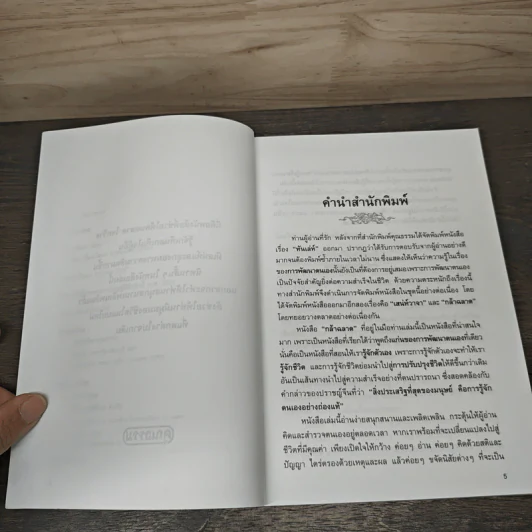 คำนำสำนักพิมพ์
ท่านผู้อ่านที่รัก หลังจากที่สำนักพิมพ์คุณธรรมได้จัดพิมพ์หนังสือ
เรื่อง "พันเล่ห์" ออกมา ปรากฏว่าได้รับการตอบรับจากผู้อ่านอย่างดี
มากจนต้องพิมพ์ซ้ำภายในเวลาไม่นาน ซึ่งแสดงให้เห็นว่าความรู้ในเรื่อง
ของการพัฒนาตนเองนั้นยังเป็นที่ต้องการอยู่เสมอเพราะการพัฒนาตนเอง
เป็นปัจจัยสำคัญยิ่งต่อความสำเร็จในชีวิต ด้วยความตระหนักถึงเรื่องนี้
ทางสำนักพิมพ์จึงดำเนินการจัดพิมพ์หนังสือในชุดนี้อย่างต่อเนื่อง โดย
ได้จัดพิมพ์หนังสือออกมาอีกสองเรื่องคือ "เสน่ห์วาจา" และ "กล้าฉลาด"
โดยทยอยวางตลาดอย่างต่อเนื่องกัน
หนังสือ "กล้าฉลาด" ที่อยู่ในมือท่านเล่มนี้เป็นหนังสือที่น่าสนใจ
มาก เพราะเป็นหนังสือที่เรียกได้ว่าพูดถึงแก่นของการพัฒนาตนเองทีเดียว
นั่นคือเป็นหนังสือที่สอนให้เรารู้จักตัวเอง เพราะการรู้จักตัวเองจะทำให้เรา
รู้จักชีวิต และการรู้จักชีวิตย่อมนำไปสู่การปรับปรุงชีวิตให้ดีขึ้นกว่าเดิม
อันเป็นเส้นทางนำไปสู่ความสำเร็จอย่างที่คนปรารถนา ซึ่งสอดคล้องกับ
คำกล่าวของปราชญ์จีนที่ว่า "สิ่งประเสริฐที่สุดของมนุษย์ คือการรู้จัก
ตนเองอย่างถ่องแท้"
หนังสือเล่มนี้อ่านง่ายสนุกสนานและเพลิดเพลิน กระตุ้นให้ผู้อ่าน
คิดและสำรวจตนเองอยู่ตลอดเวลา หากเราพร้อมที่จะเปลี่ยนแปลงไปสู่
ชีวิตที่มีคุณค่า เพียงเปิดใจให้กว้าง ค่อยๆ อ่าน ค่อยๆ คิดด้วยสติและ
ปัญญา ไตร่ตรองด้วยเหตุและผล แล้วค่อยๆ ขจัดนิสัยต่างๆ ที่จะเป็น
5